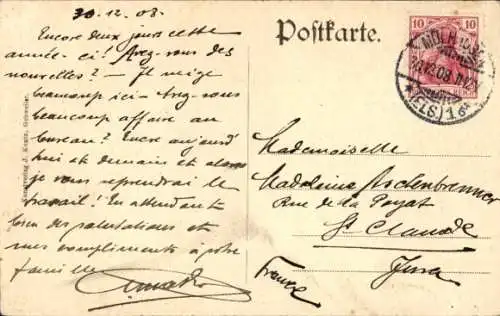 30.12.08.
Encore deux jours cette
année-ci! Avez-vous des
nouvelles? — Il neige
beaucoup ici - Avez-vous
beaucoup affaire au
bureau? Encre aujourd'
hui et demain et alors
je vous reprendrai le
travail! En attendant
bien des salutations et
mes compliments à votre
famille
Postkarte.
10 10
MOLHAUSEN
31.12.08
(ELS.) 1
Mademoiselle
Madeleine Aschenbrenner
Rue de la Poyat
St Claude
Jura
France